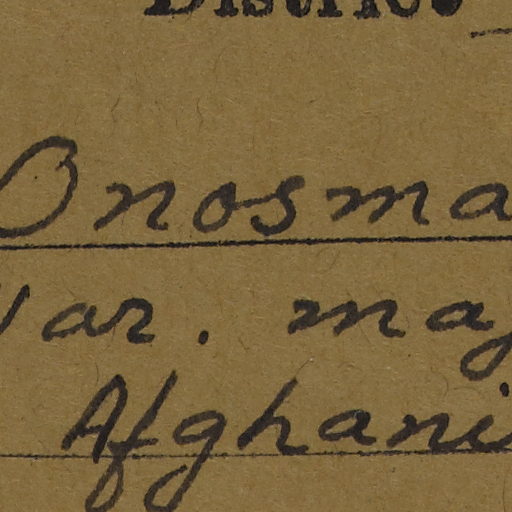 District
Onosma
var. maj
Afghanis